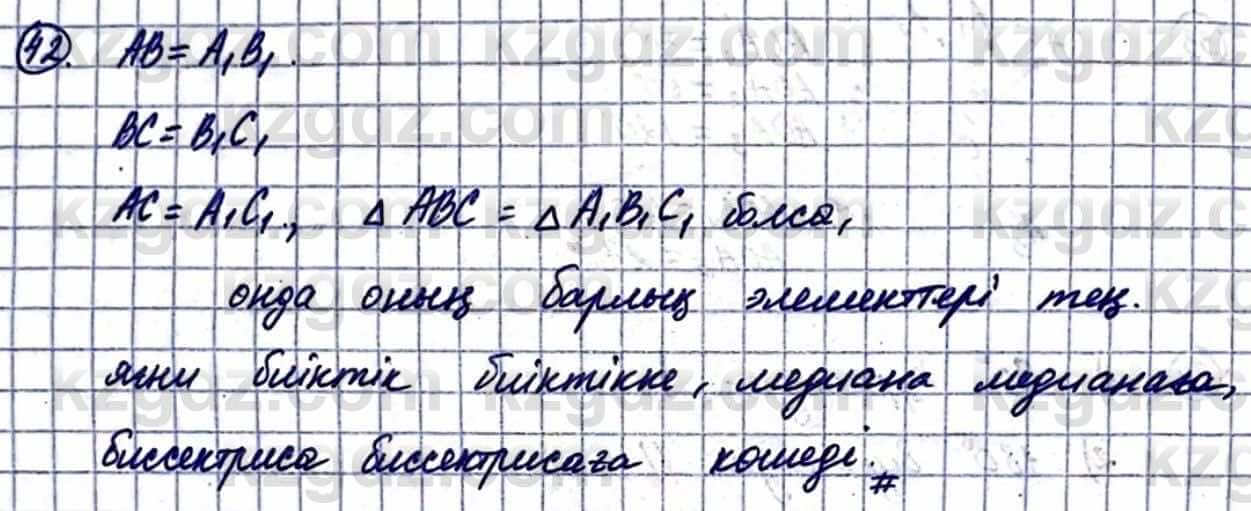 42. AB = A₁B₁.
BC = B₁C₁
AC = A₁C₁., △ ABC = △ A₁B₁C₁ болса,
онда оның барлық элементтері тең.
яғни биіктік биіктікке, медиана медианаға,
биссектриса биссектрисаға көшеді. #